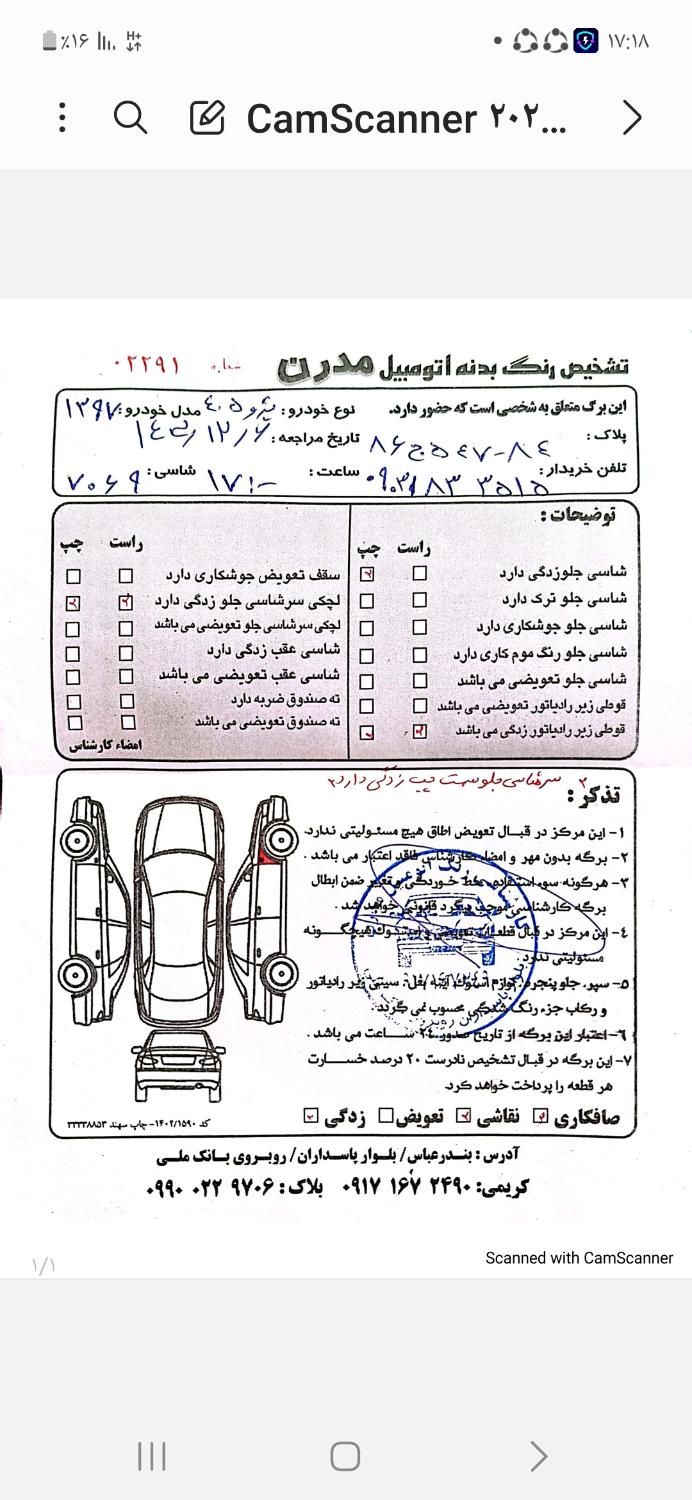 ٪۱۶ H+ ۱۷:۱۸
CamScanner ۲۰۲...
تشخیص رنگ بدنه اتومبیل مدرن شماره ۰۲۲۹۱
این برگ متعلق به شخصی است که حضور دارد. نوع خودرو: پژو ۴۰۵ مدل خودرو: ۱۳۹۷
پلاک: تاریخ مراجعه:
تلفن خریدار: ساعت: ۱۷:۰ شاسی: ۷۰۶۹
توضیحات:
راست چپ راست چپ
شاسی جلوزدگی دارد سقف تعویض جوشکاری دارد
شاسی جلو ترک دارد لچکی سرشاسی جلو زدگی دارد
شاسی جلو جوشکاری دارد لچکی سرشاسی جلو تعویضی می باشد
شاسی جلو رنگ موم کاری دارد شاسی عقب زدگی دارد
شاسی جلو تعویضی می باشد شاسی عقب تعویضی می باشد
قوطی زیر رادیاتور تعویضی می باشد ته صندوق ضربه دارد
قوطی زیر رادیاتور زدگی می باشد ته صندوق تعویضی می باشد
امضاء کارشناس
سرشاسی جلو سمت چپ زدگی دارد
تذکر:
۱- این مرکز در قبال تعویض اطاق هیچ مسئولیتی ندارد.
۲- برگه بدون مهر و امضاء کارشناس فاقد اعتبار می باشد.
۳- هرگونه سوء استفاده، خط خوردگی و تغییر ضمن ابطال
برگه کارشناسی موجب پیگرد قانونی خواهد شد.
٤- این مرکز در قبال قطعات تعویضی و استوک هیچگونه
مسئولیتی ندارد.
۵- سپر، جلو پنجره، لوازم استوک، آینه بغل، سینی زیر رادیاتور
و رکاب جزء رنگ شدگی محسوب نمی گردد.
۶- اعتبار این برگه از تاریخ صدور ۲٤ ساعت می باشد.
۷- این برگه در قبال تشخیص نادرست ۲۰ درصد خسارت
هر قطعه را پرداخت خواهد کرد.
صافکاری نقاشی تعویض زدگی
کد ۱۴۰۲/۱۵۹۰-چاپ سهند ۳۳۳۳۸۸۵۳
آدرس: بندرعباس/ بلوار پاسداران/ روبروی بانک ملی
کریمی: ۰۹۱۷ ۱۶۷ ۲۴۹۰ بلاک: ۰۹۹۰ ۰۲۲ ۹۷۰۶
Scanned with CamScanner
۱/۱